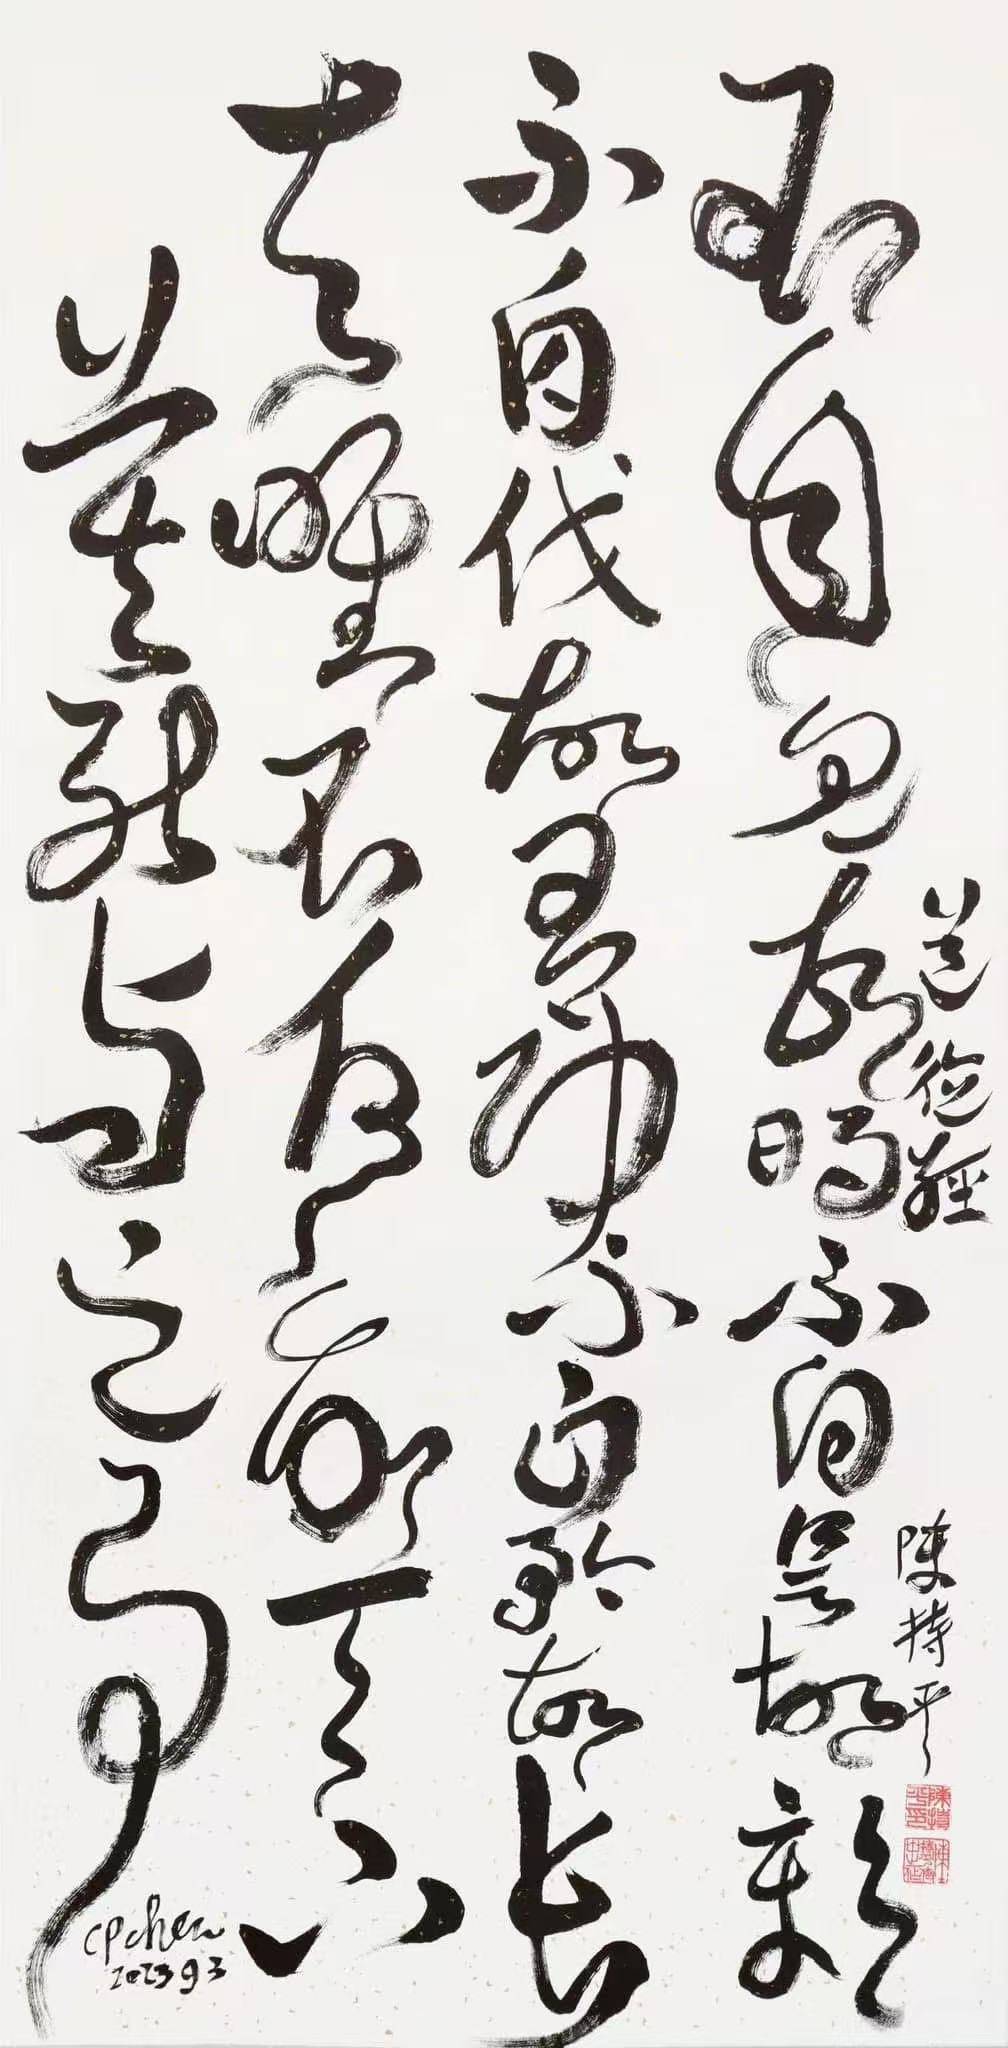 不自見故明不自是故彰
不自伐故有功不自矜故長
夫唯不爭故天下
莫能與之爭
道德經
陳持平
CPchen
2023 9 3